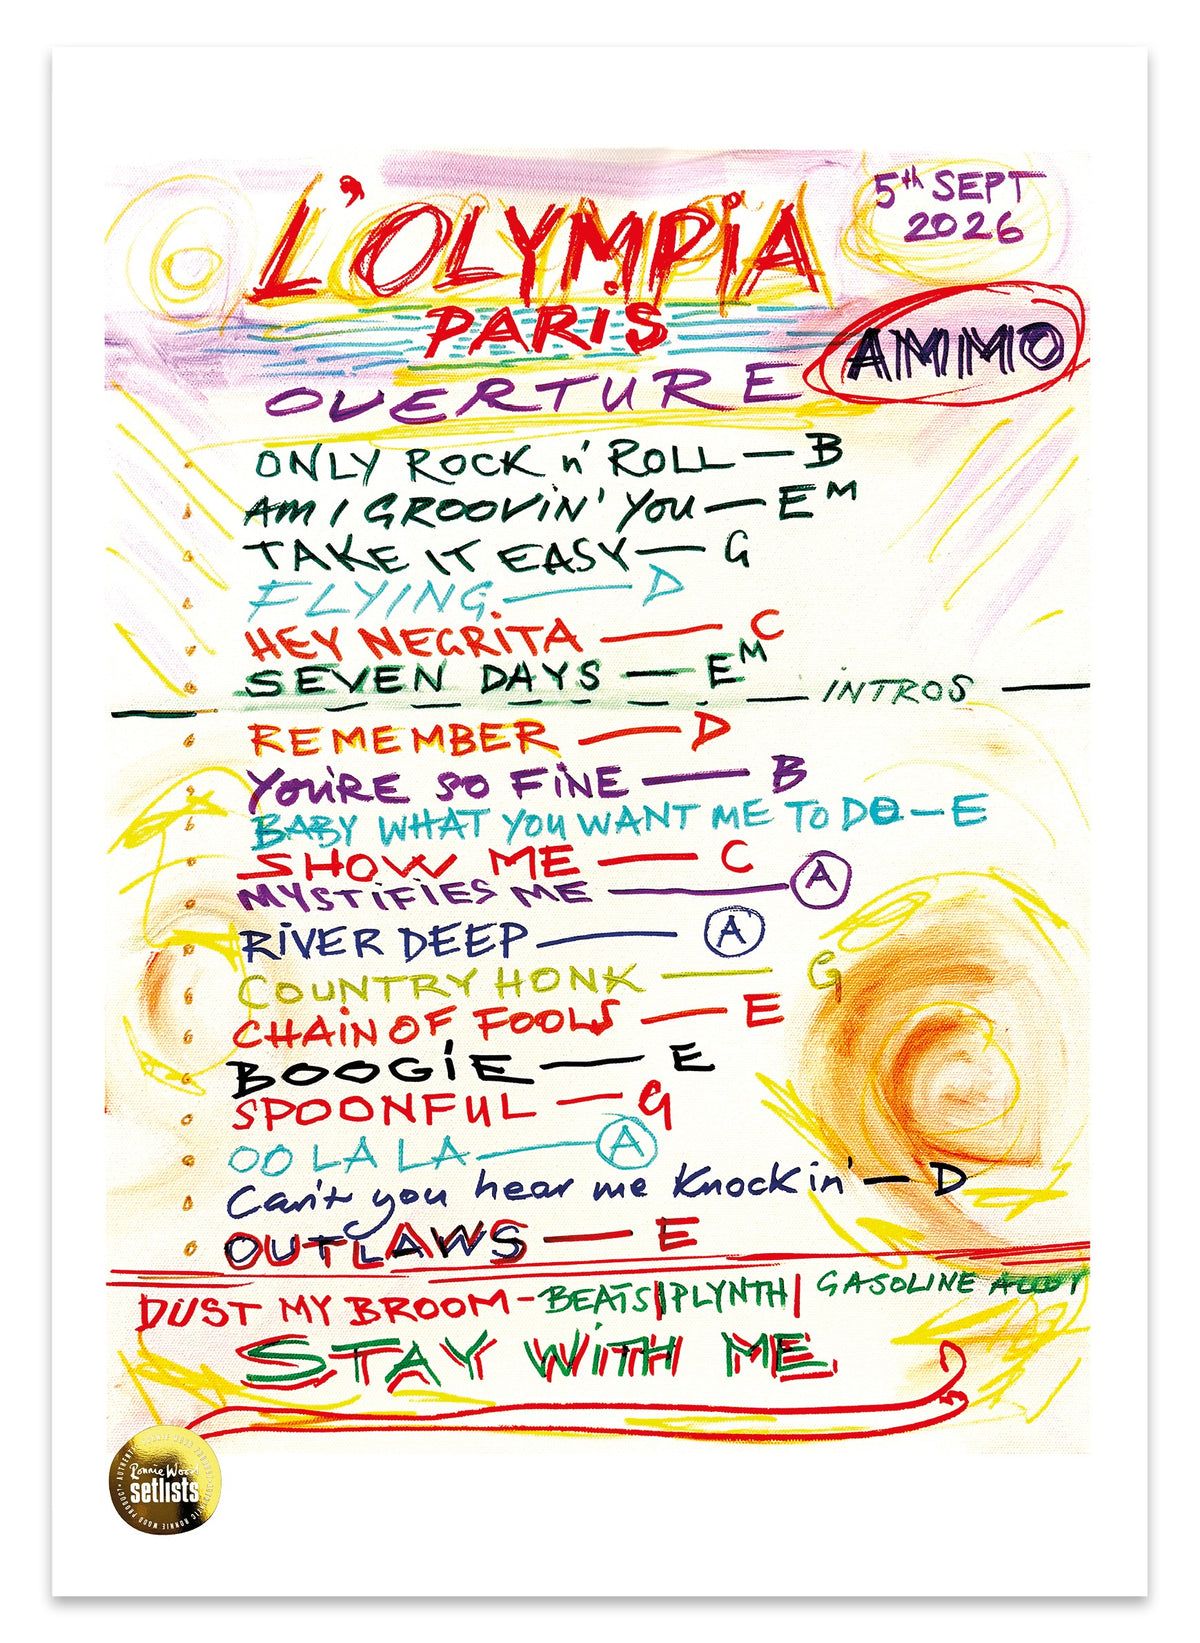 L'OLYMPIA
5th SEPT
2026
PARIS
AMMO
OVERTURE
ONLY ROCK n' ROLL — B
AM I GROOVIN' YOU — EM
TAKE IT EASY — G
FLYING — D
HEY NEGRITA — C
SEVEN DAYS — EM
INTROS
REMEMBER — D
YOU'RE SO FINE — B
BABY WHAT YOU WANT ME TO DO — E
SHOW ME — C
MYSTIFIES ME — A
RIVER DEEP — A
COUNTRY HONK — G
CHAIN OF FOOLS — E
BOOGIE — E
SPOONFUL — G
OO LA LA — A
Can't you hear me Knockin' — D
OUTLAWS — E
DUST MY BROOM - BEATS | PLYNTH | GASOLINE ALLEY
STAY WITH ME.
Ronnie Wood
setlists